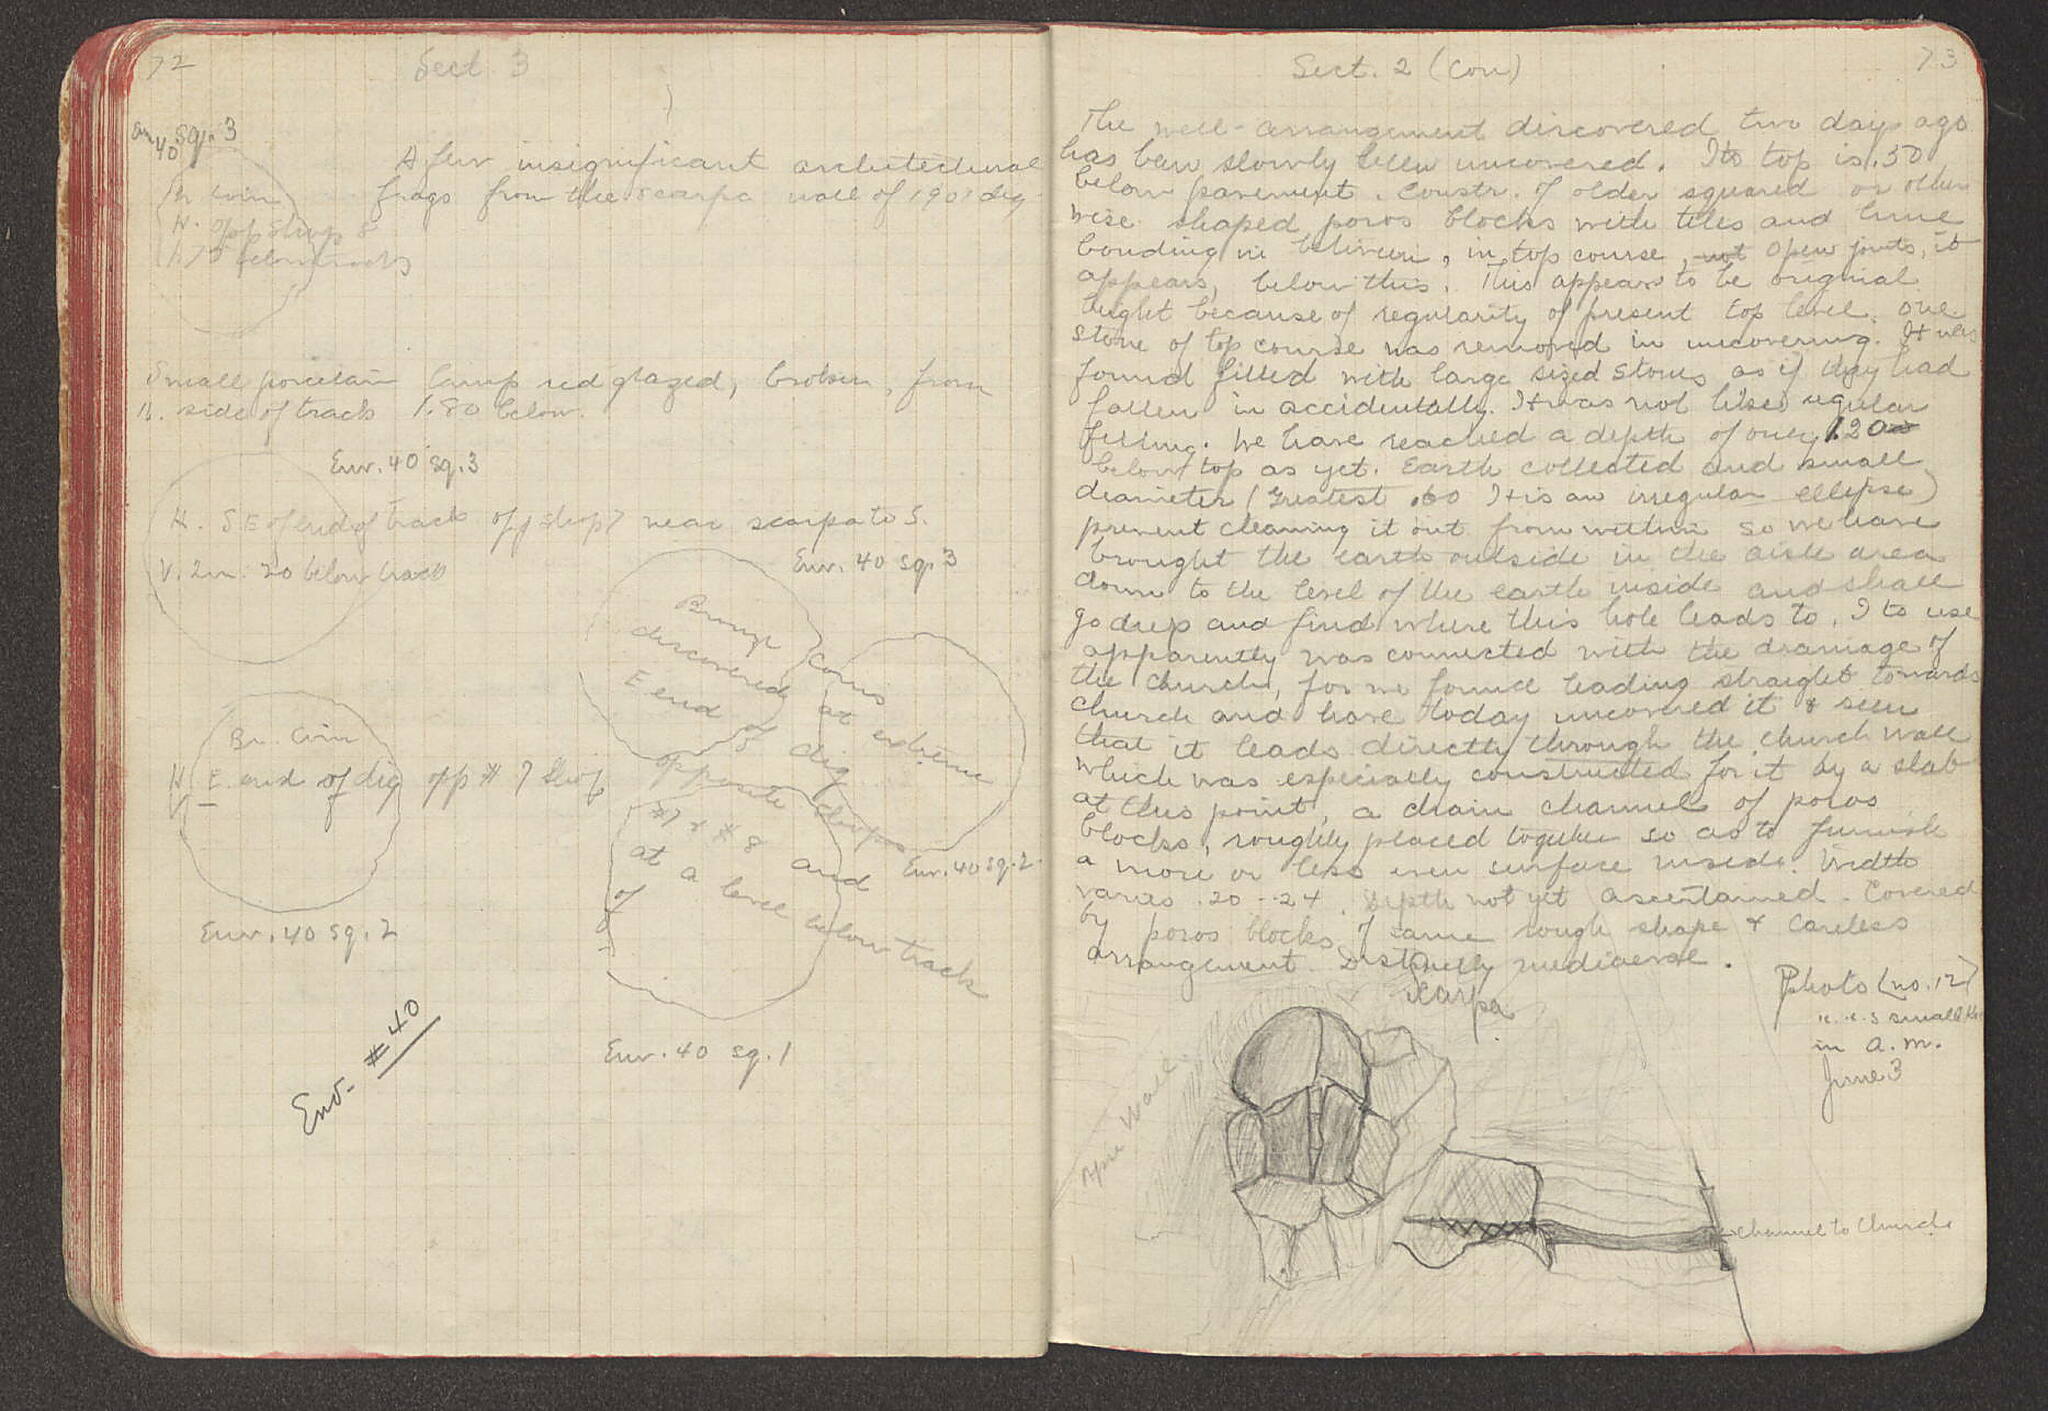 72
Sect 3
Env 40 sq. 3
Br coin
H. opp Shop 8
1.75 below tracks
A few insignificant architectural
frags from the scarpa wall of 1901 dig
Small porcelain lamp red glazed, broken, from
N. side of track 1.80 below.
Env. 40 sq. 3
H. SE of end of track opp shop 7 near scarpa to S.
V. 2m. 20 below track
Env. 40 sq. 3
Bronze coins
discovered at extreme
E end of dig
opposite shops
#7 & #8 and
at a level below track
of
Env. 40 sq. 2
Br. Coin
H. E. end of dig opp #7 Shop
V
Env. 40 sq. 2
Env. 40 sq. 1
Env. #40
73
Sect. 2 (con)
The well-arrangement discovered two day ago
has been slowly been uncovered. Its top is .50
below pavement. Constr. of older squared or other
wise shaped poros blocks with tiles and lime
bonding in between, in top course, not open joints, it
appears, below this. This appears to be original
height because of regularity of present top level. One
stone of top course was removed in uncovering. It was
found filled with large sized stones as if they had
fallen in accidentally. It was not like regular
filling. We have reached a depth of over 1.20
below top as yet. Earth collected and small
diameter (Greatest .60 It is an irregular ellipse)
prevent cleaning it out from within so we have
brought the earth outside in the aisle area
down to the level of the earth inside and shall
go deep and find where this hole leads to. Its use
apparently was connected with the drainage of
the church, for we found leading straight towards
church and have today uncovered it & seen
that it leads directly through the church wall
which was especially constructed for it by a slab
at this point, a drain channel of poros
blocks, roughly placed together so as to furnish
a more or less even surface inside. Width
varies .20 - .24. Depth not yet ascertained. Covered
by poros blocks of same rough shape & careless
arrangement. Distinctly mediaeval.
Scarpa
Photo (no. 12)
small
in a.m.
June 3
Wall
channel to Church